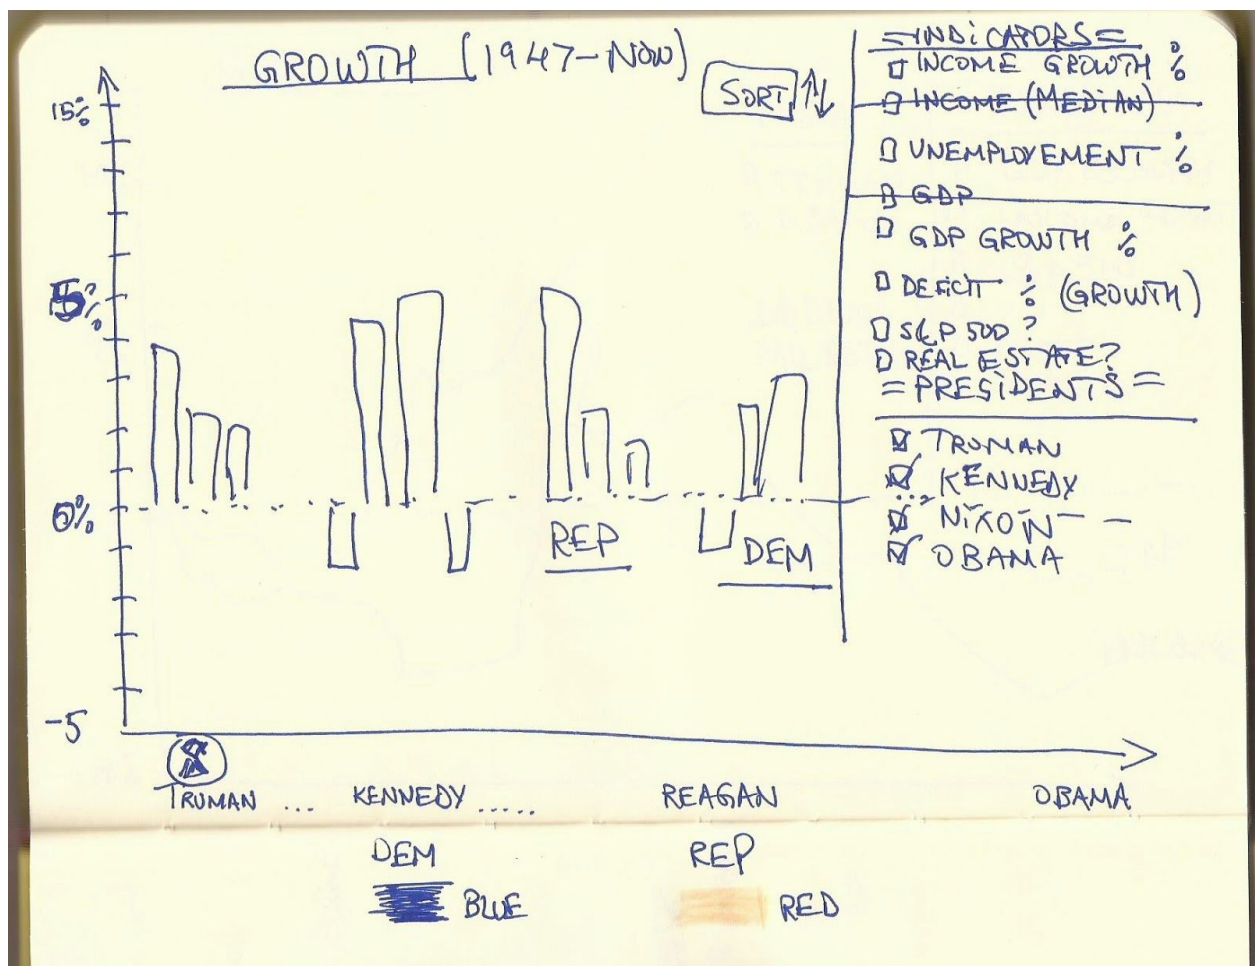 GROWTH (1947-NOW)
SORT
15%
5%
0%
-5
REP
DEM
TRUMAN ... KENNEDY ..... REAGAN OBAMA
DEM REP
BLUE RED
=INDICATORS=
INCOME GROWTH %
INCOME (MEDIAN)
UNEMPLOYEMENT %
GDP
GDP GROWTH %
DEFICIT % (GROWTH)
S&P 500?
REAL ESTATE?
=PRESIDENTS=
TRUMAN
KENNEDY
NIXON
OBAMA